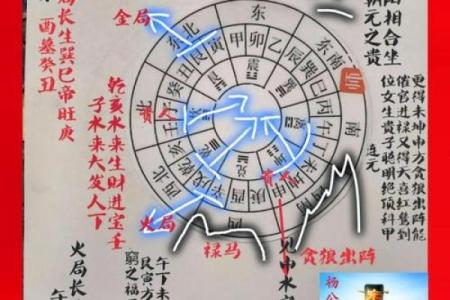 阳相合坐
朝元之贵
更得未坤申方贪狼出阵能
催官进禄又得天喜红鸾到
位文生贵子聪明绝顶科甲
连元
金局
局长生巽巳帝旺庚
酉墓癸丑
乾亥水来生财进宝壬
子水来大发人丁
贵人
火局
禄马
贵人
贪狼出阵
见申水
火局长
午丁未
艮寅方
穷之福
东
东南
南
西南
西
西北
北
东北
甲卯乙
辰巽巳
丙午丁
未坤申
庚酉辛
戌乾亥
壬子癸
丑艮寅
杨公